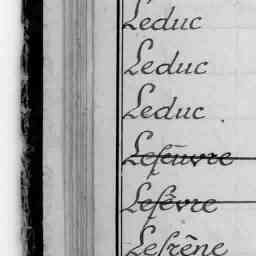 Leduc
Leduc
Leduc
Lefeuvre
Lefêvre
Lefrêne